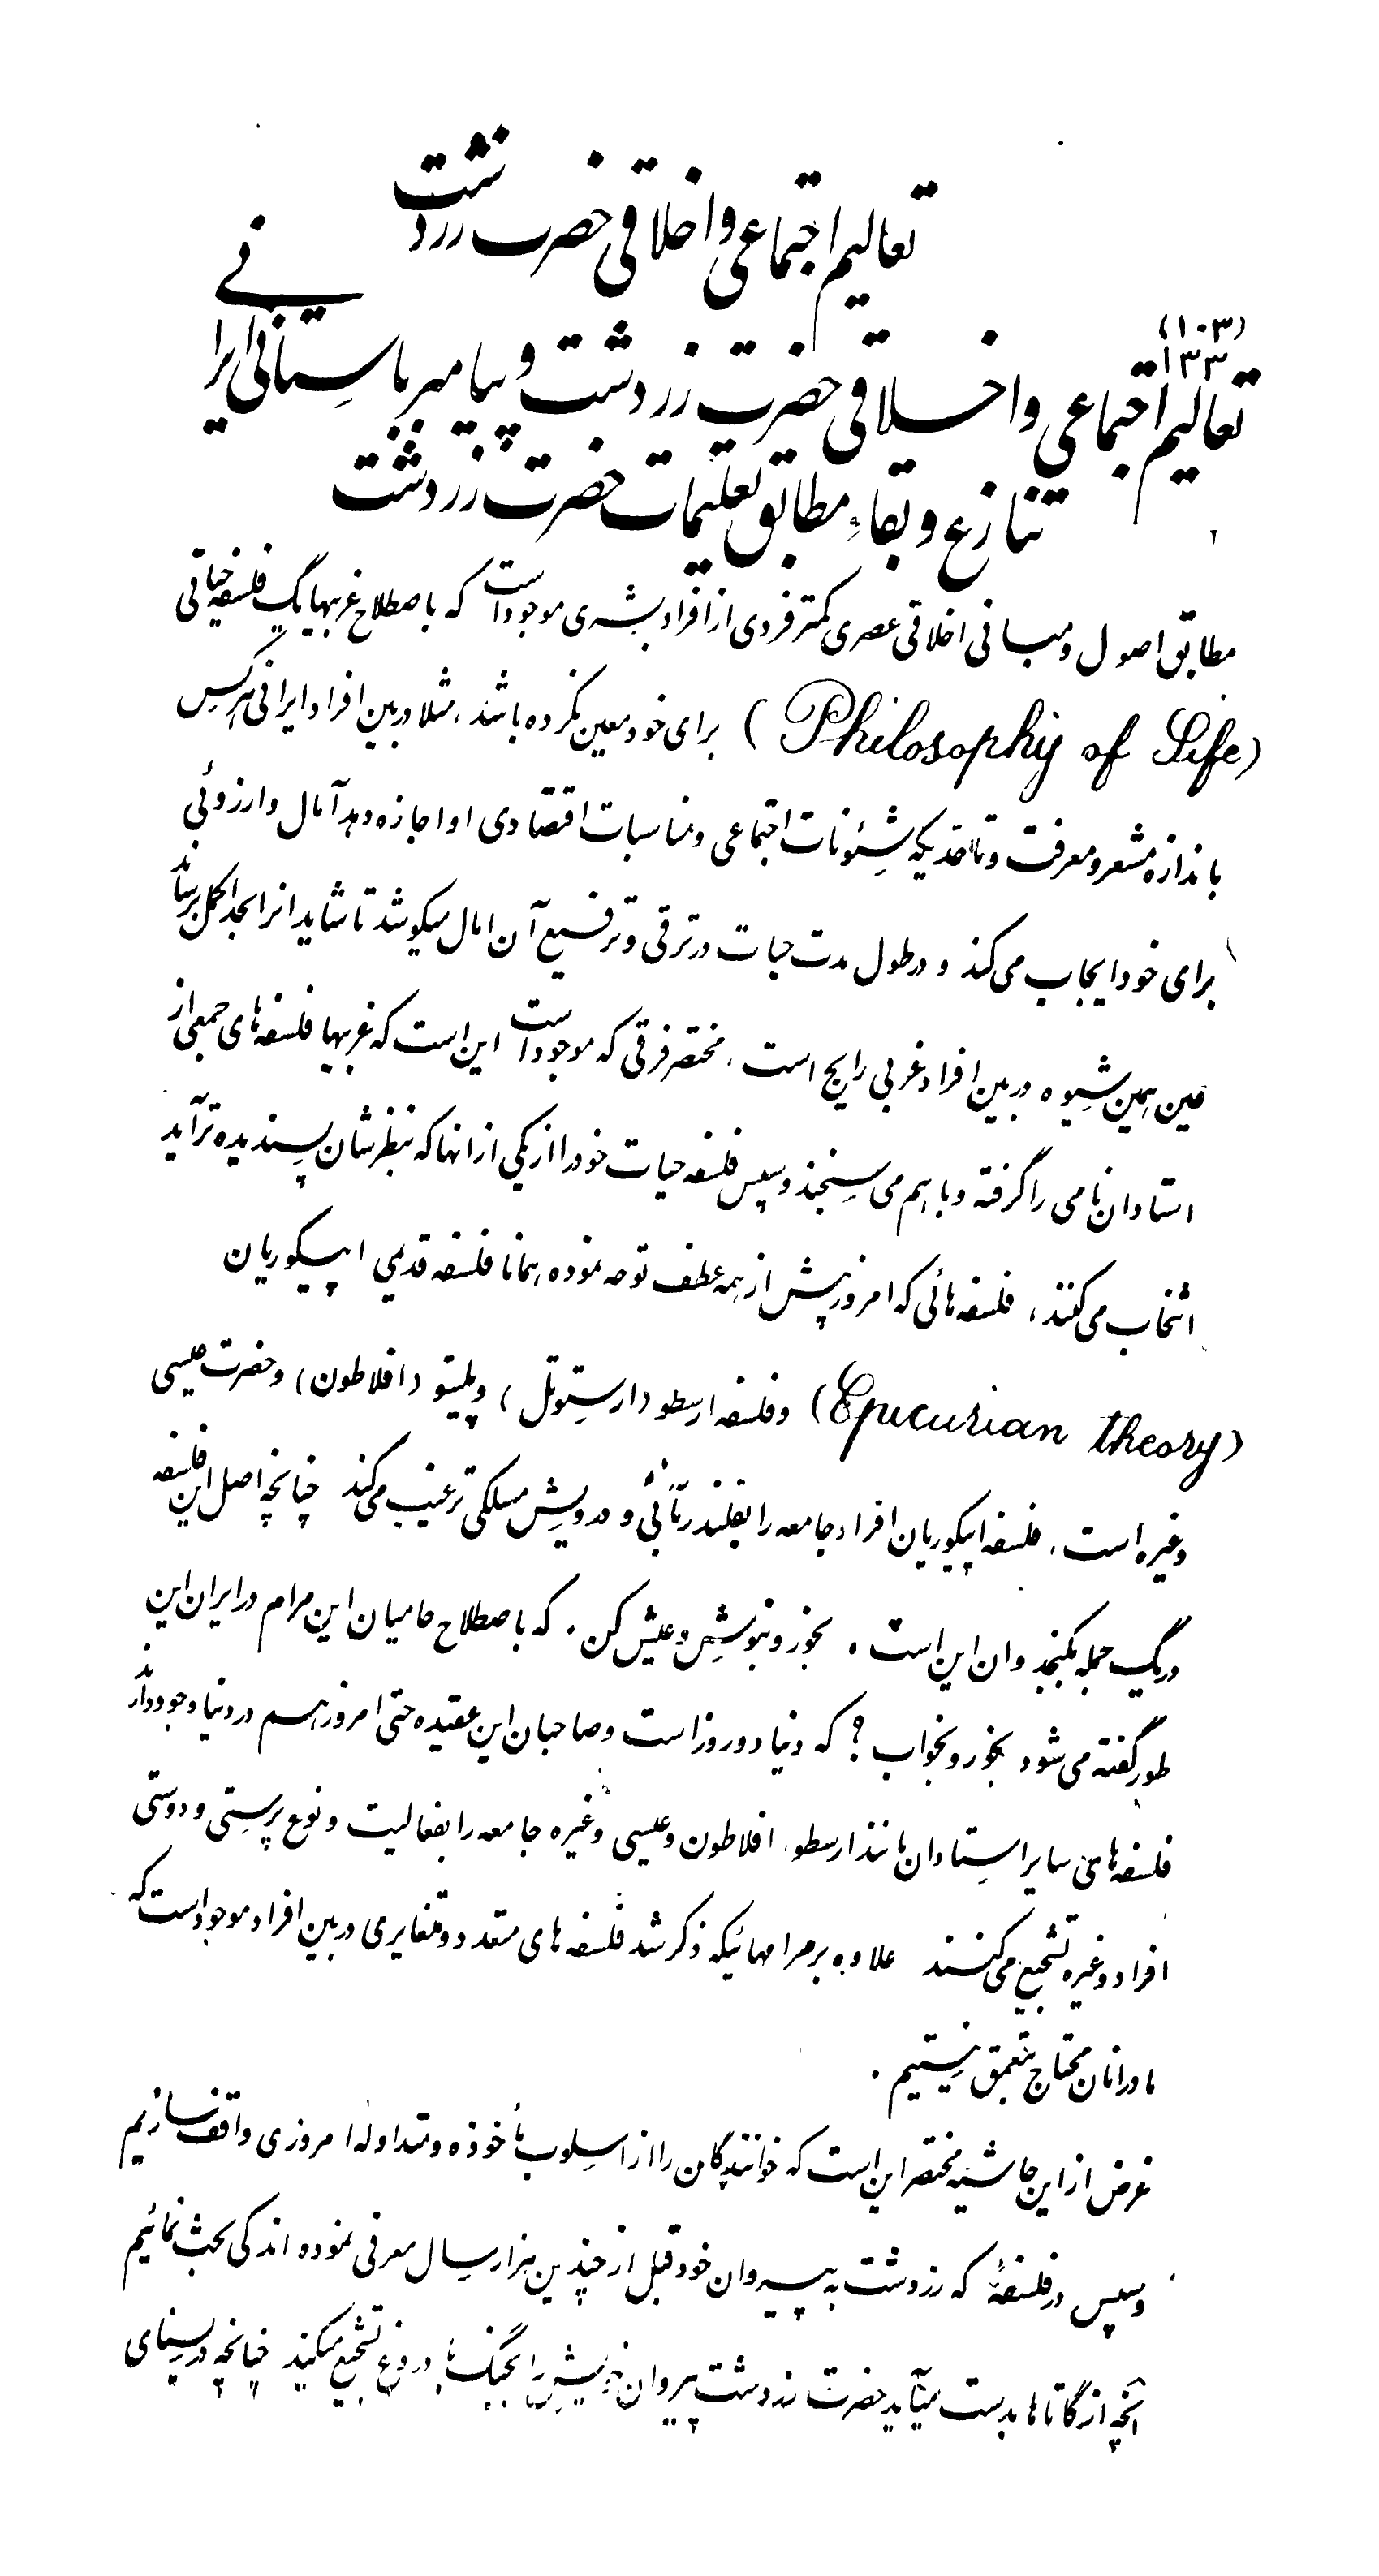 تعالیم اجتماعی و اخلاقی حضرت زردشت
(۱۰۳)
۱۳۳
تعالیم اجتماعی و اخلاقی حضرت زردشت و پیامبر باستانی ایرانی
تنازع و بقاء مطابق تعلیمات حضرت زردشت
مطابق اصول و مبانی اخلاقی عصری کمتر فردی از افراد بشری موجود است که باصطلاح غربیها یک فلسفه حیاتی
(Philosophy of Life) برای خود معین نکرده باشد ، مثلا در بین افراد ایرانی هر کس
باندازه مشعر و معرفت و تا حدیکه شئونات اجتماعی و مناسبات اقتصادی او اجازه دهد آمال و ارزوئی
برای خود ایجاب می کند و در طول مدت حیات در ترقی و ترفیع آن امال میکوشد تا شاید انرا بحد اکمل برساند
عین همین شیوه در بین افراد غربی رایج است . مختصر فرقی که موجود است این است که غربیها فلسفه های جمعی از
استادان نامی را گرفته و با هم می سنجند و سپس فلسفه حیات خود را از یکی از انها که بنظرشان پسندیده تر آید
انتخاب می کنند ، فلسفه هائی که امروز پیش از همه عطف توجه نموده همانا فلسفه قدیمی اپیکوریان
(Epicurian theory) و فلسفه ارسطو (ارستوتل) و پلیتو (افلاطون) و حضرت عیسی
و غیره است . فلسفه اپیکوریان افراد جامعه را بقلندر مآبی و درویش مسلکی ترغیب می کند چنانچه اصل این فلسفه
در یک جمله بگنجد و ان این است . بخور و بنوش و عیش کن . که باصطلاح حامیان این مرام در ایران این
طور گفته می شود بخور و بخواب ؟ که دنیا دو روز است و صاحبان این عقیده حتی امروز هم در دنیا وجود دارند
فلسفه های سایر استادان مانند ارسطو . افلاطون و عیسی و غیره جامعه را بفعالیت و نوع پرستی و دوستی
افراد و غیره تشجیع می کنند علاوه بر مرامهائیکه ذکر شد فلسفه های متعدد و متغایری در بین افراد موجود است که
ما در انان محتاج بتعمق نیستیم .
غرض از این حاشیه مختصر این است که خوانندگان را از اسلوب مأخوذه و متداوله امروزی واقف سازیم
و سپس در فلسفهٔ که زردشت به پیروان خود قبل از چندین هزار سال معرفی نموده اندکی بحث نمائیم
آنچه از گاتاها بدست میآید حضرت زردشت پیروان خویش را بجنگ با دروغ تشجیع میکند چنانچه در یسنای